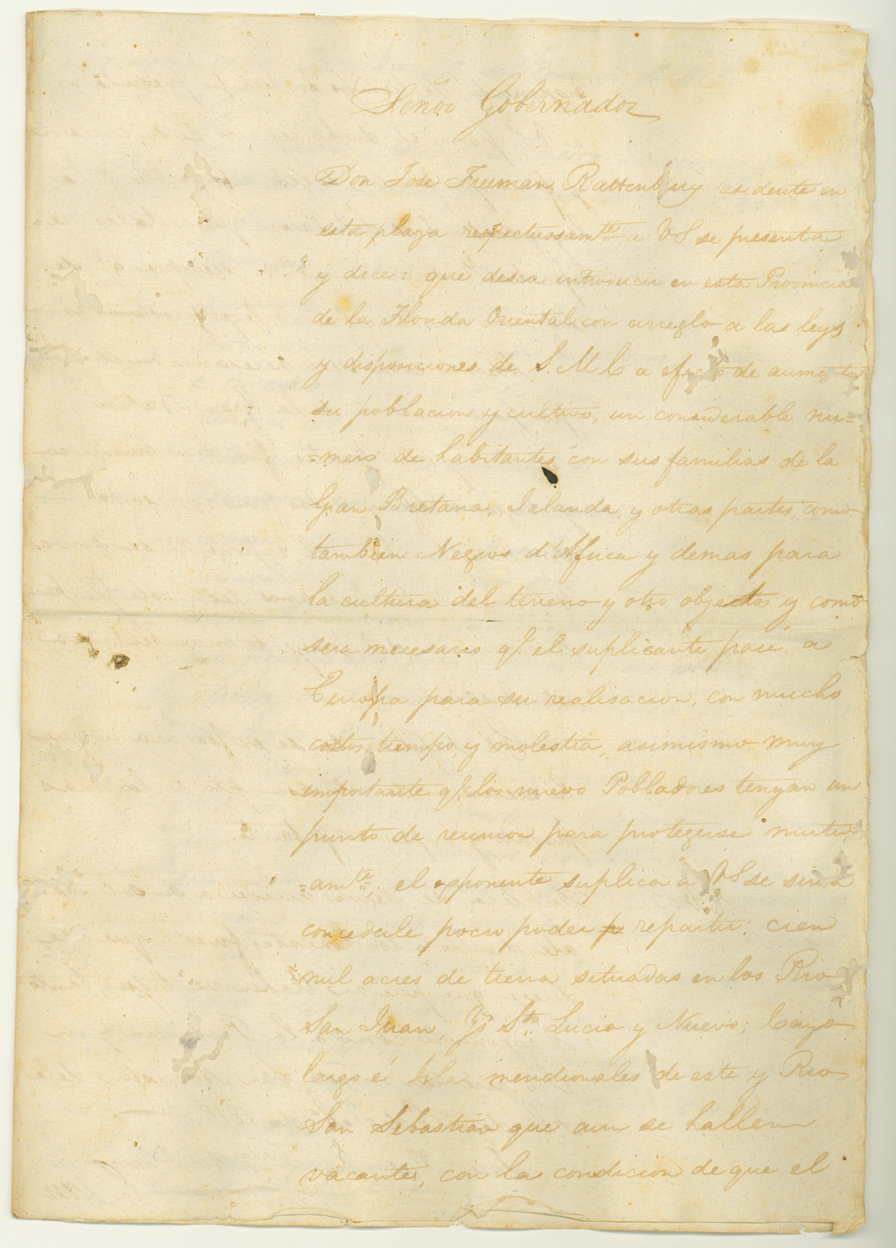 Señor Gobernador
Don Jose Freeman Rattenbury residente en
esta plaza respectuosamte. a VS se presenta
y dice: que desea introducir en esta Provincia
de la Florida Oriental con arreglo a las leys
y disposiciones de S. M C a efecto de aumentar
su poblacion y cultivo, un considerable nu=
=mero de habitantes con sus familias de la
Gran Bretana, Irlanda, y otras partes, como
tambien Negros d'Africa y demas para
la cultura del terreno y otro objectos y como
sera necesario q. el suplicante pase a
Europa para su realisacion, con mucho
costos, tiempo, y molestia, asimismo muy
importante q. los nuevo Pobladores tengan un
punto de reunion para protegerse mutu=
=amte., el exponente suplica a VS se sirva
concedale poder repartir: cien
mil acres de tierra situadas en los Rio
San Juan, Ys Sta. Lucia y Nuevo; Cayo
largo é Islas meridionales de este y Rio
San Sebastian que aun se hallen
vacantes, con la condicion de que el